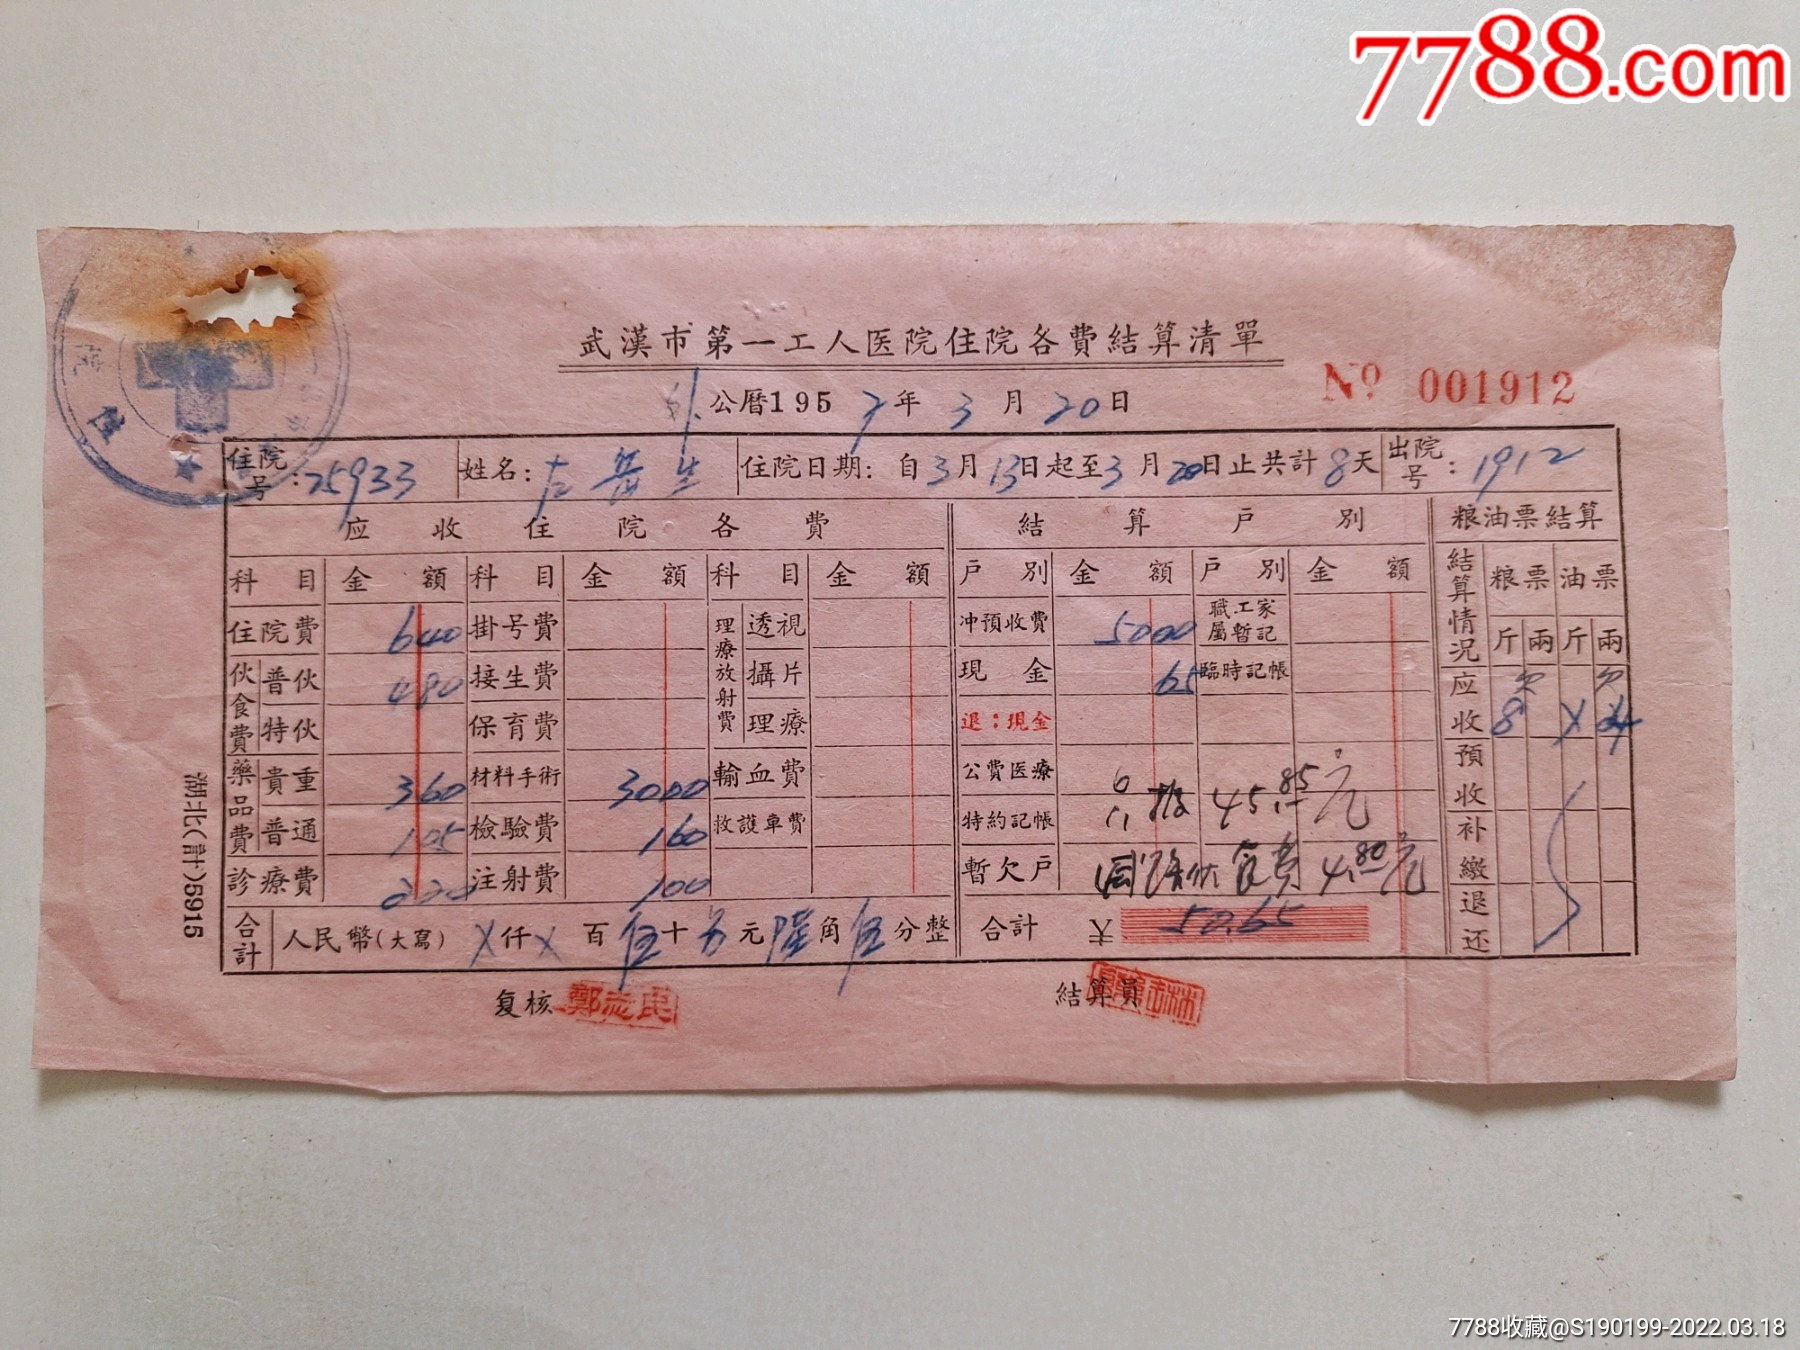 7788.com
武漢市第一工人医院住院各費結算清單
公曆195 7年 3 月 20日
№ 001912
住院号:25933 姓名:左 生 住院日期: 自3月13日起至3月20日止共計8天 出院号:1912
应收住院各費 結算戶別 粮油票結算
科目 金額 科目 金額 科目 金額 戶別 金額 戶別 金額 結算情况 粮票 油票
斤 兩 斤 兩
住院費 640 掛号費 理療放射費 透視 冲預收費 5000 職工家屬暫記
伙食費 普伙 480 接生費 攝片 現金 65 臨時記帳 应收 欠 8 X 欠
特伙 保育費 理療 退:現金
藥品費 貴重 360 材料手術 3000 輸血費 公費医療 预收
普通 105 檢驗費 160 救護車費 特約記帳 报 45.85元 补繳
診療費 220 注射費 100 暫欠戶 伙食费 4.80元 退还
合計 人民幣(大寫) X仟X百伍十 元陸角伍分整 合計 ¥ 50.65
复核 鄭志民 結算員
湖北(計)5915
住 院
7788收藏@S190199-2022.03.18